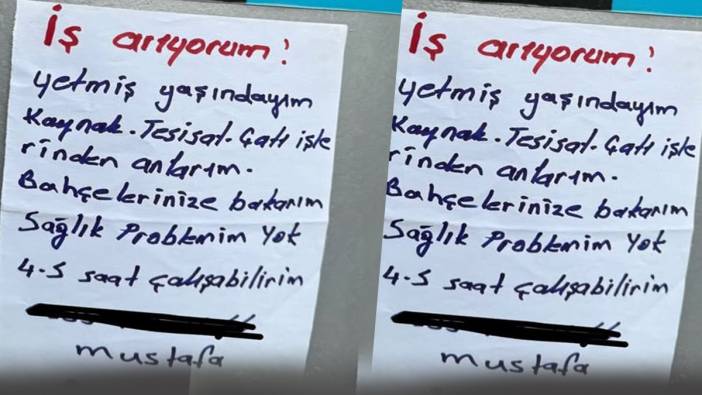 İş arıyorum!
yetmiş yaşındayım
Kaynak. Tesisat. Çatı işle
rinden anlarım.
Bahçelerinize bakarım
Sağlık Problemim Yok
4-5 saat çalışabilirim
mustafa
İş arıyorum!
yetmiş yaşındayım
Kaynak. Tesisat. Çatı işle
rinden anlarım.
Bahçelerinize bakarım
Sağlık Problemim Yok
4-5 saat çalışabilirim
mustafa